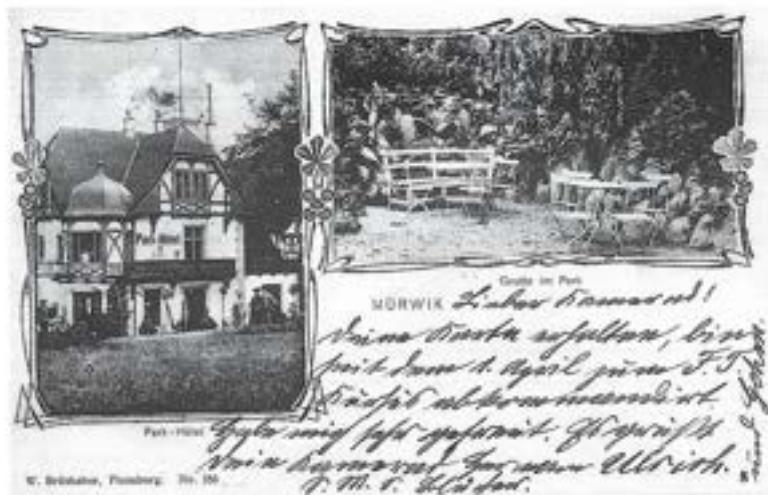 Park-Hôtel
Grotte im Park
MÜRWIK Lieber Kamerad!
Deine Karte erhalten, bin
seit dem 1. April zum F.T.
abkommandiert
Park-Hôtel Habe mich sehr gefreut. Es grüßt
Dein Kamerad Hermann Ulrich.
S.M.S.
W. Flensburg. No.